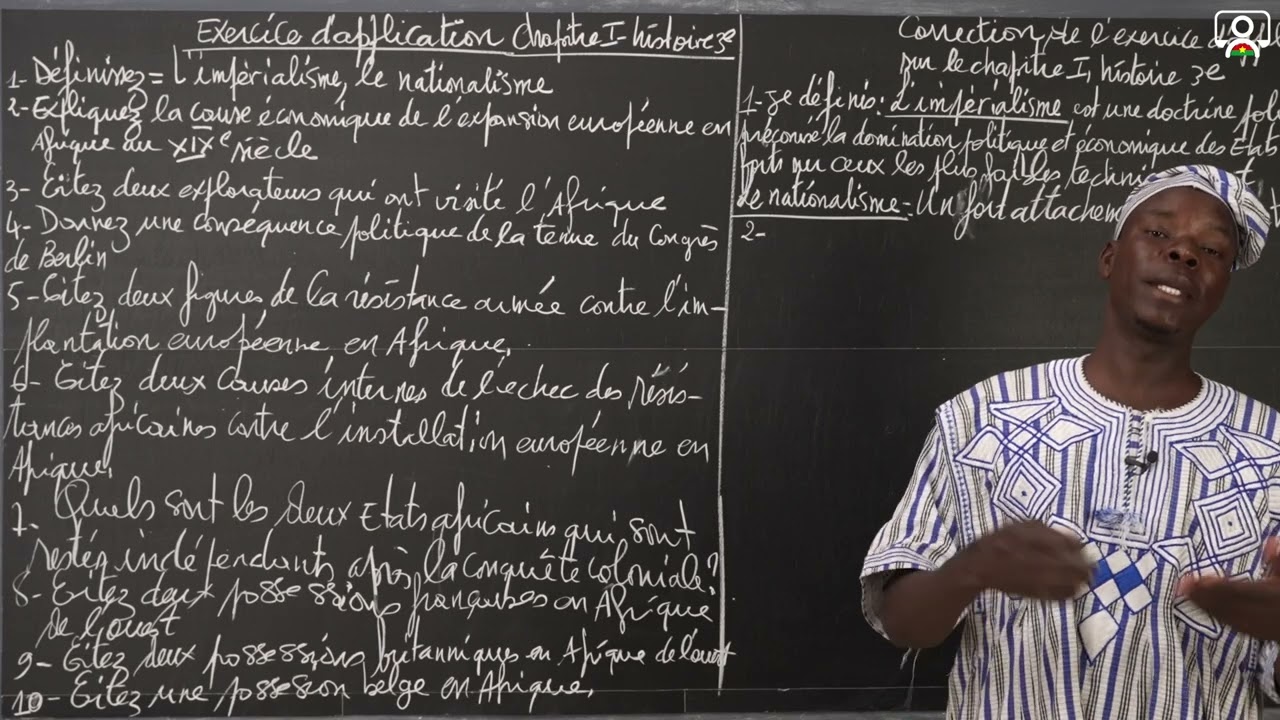 Exercice d'application Chapitre I - histoire 3e
1- Définissez = l'impérialisme, le nationalisme
2- Expliquez la cause économique de l'expansion européenne en
Afrique au XIXe siècle
3- Citez deux explorateurs qui ont visité l'Afrique
4- Donnez une conséquence politique de la tenue du Congrès
de Berlin
5- Citez deux figures de la résistance armée contre l'im-
plantation européenne en Afrique.
6- Citez deux causes internes de l'echec des résis-
tances africaines contre l'installation européenne en
Afrique.
7- Quels sont les deux Etats africains qui sont
restés indépendants après la conquête coloniale?
8- Citez deux possessions françaises en Afrique
de l'ouest
9- Citez deux possessions britanniques en Afrique de l'ouest
10- Citez une possession belge en Afrique.
Correction de l'exercice
sur le chapitre I, histoire 3e
1- Je définis: L'impérialisme est une doctrine
préconise la domination politique et économique des Etats
forts sur ceux les plus faibles
Le nationalisme - Un fort
2-